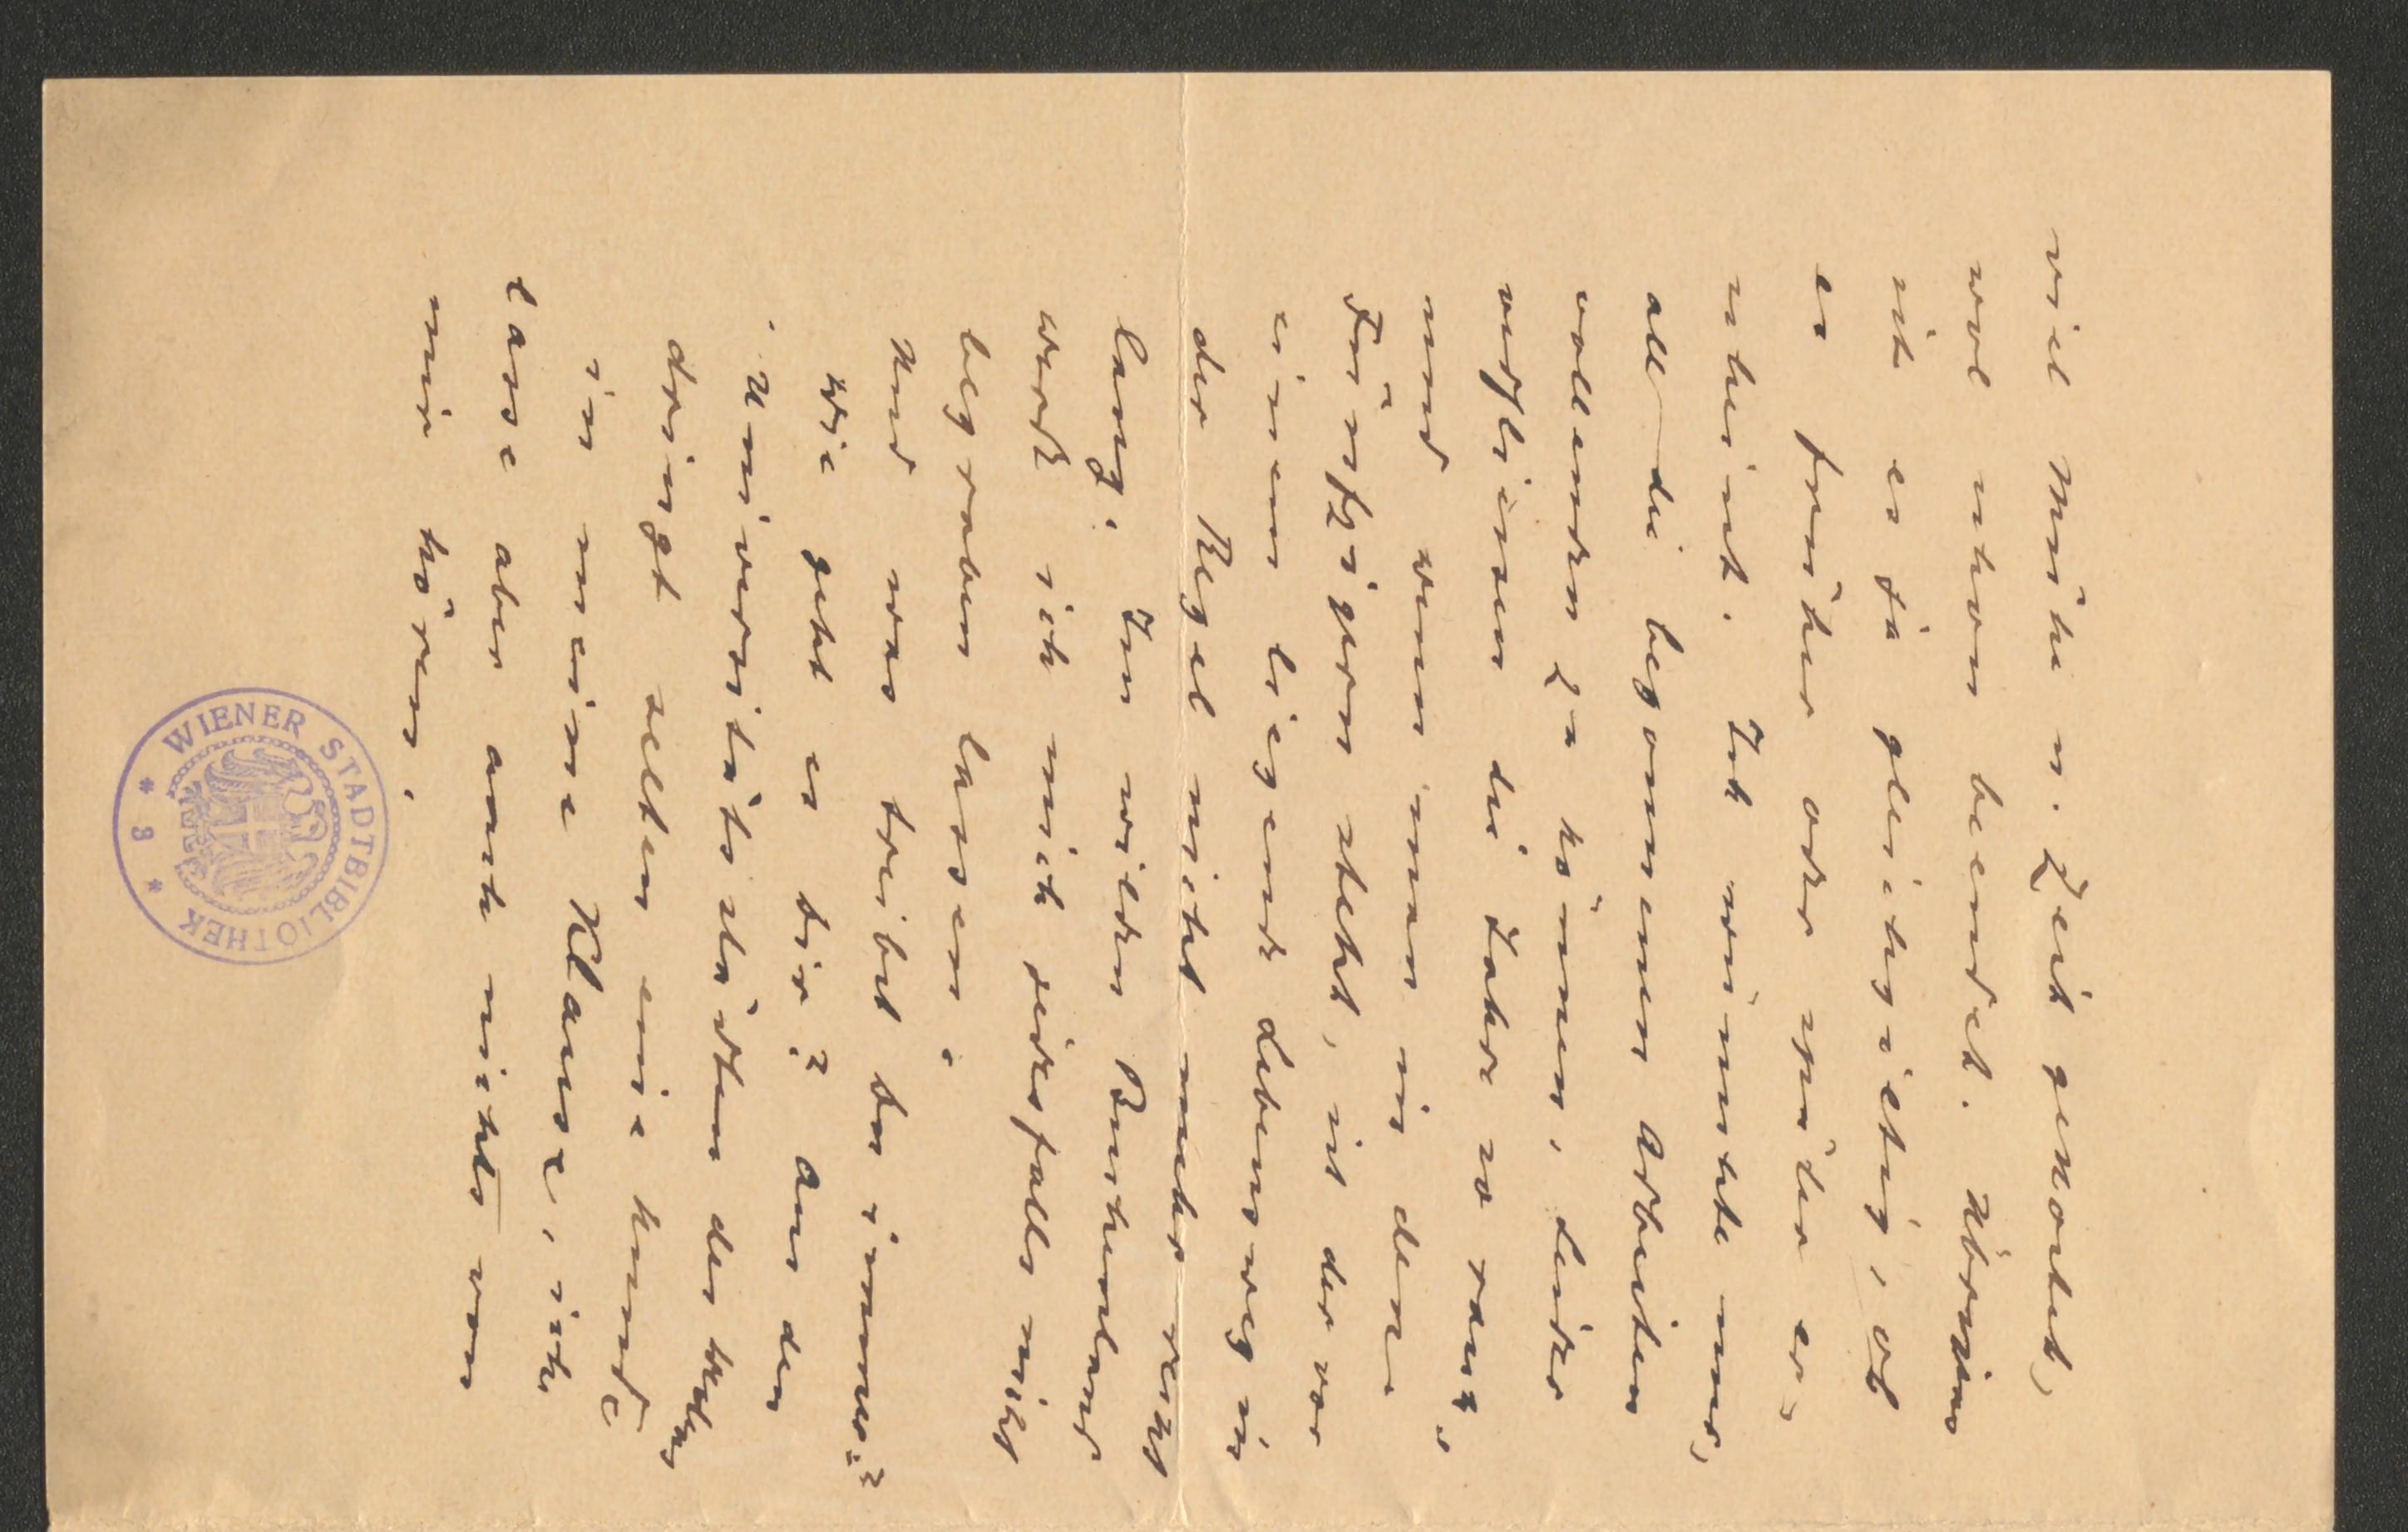 viel Mühe u. Zeit gekostet,
wol schon beendet. Übrigens
ist es ja gleichgiltig, ob
es früher oder später er-
scheint. Ich wünschte nur,
alle die begonnenen Arbeiten
vollenden zu können, leider
verfliessen die Jahre so rasch,
und wenn man in den
Fünfzigern steht, ist der vor
einem liegende Lebensweg in
der Regel nicht mehr recht
lang. Im wilden Burschenland
werde ich mich jedesfalls nicht
begraben lassen.
Und was treibst du immer?
Wie geht es dir? Aus den
Universitätsstädten des
dringt selten eine Kunde
in meine Klause, ich
lasse aber auch nichts von
mir hören.
WIENER STADTBIBLIOTHEK